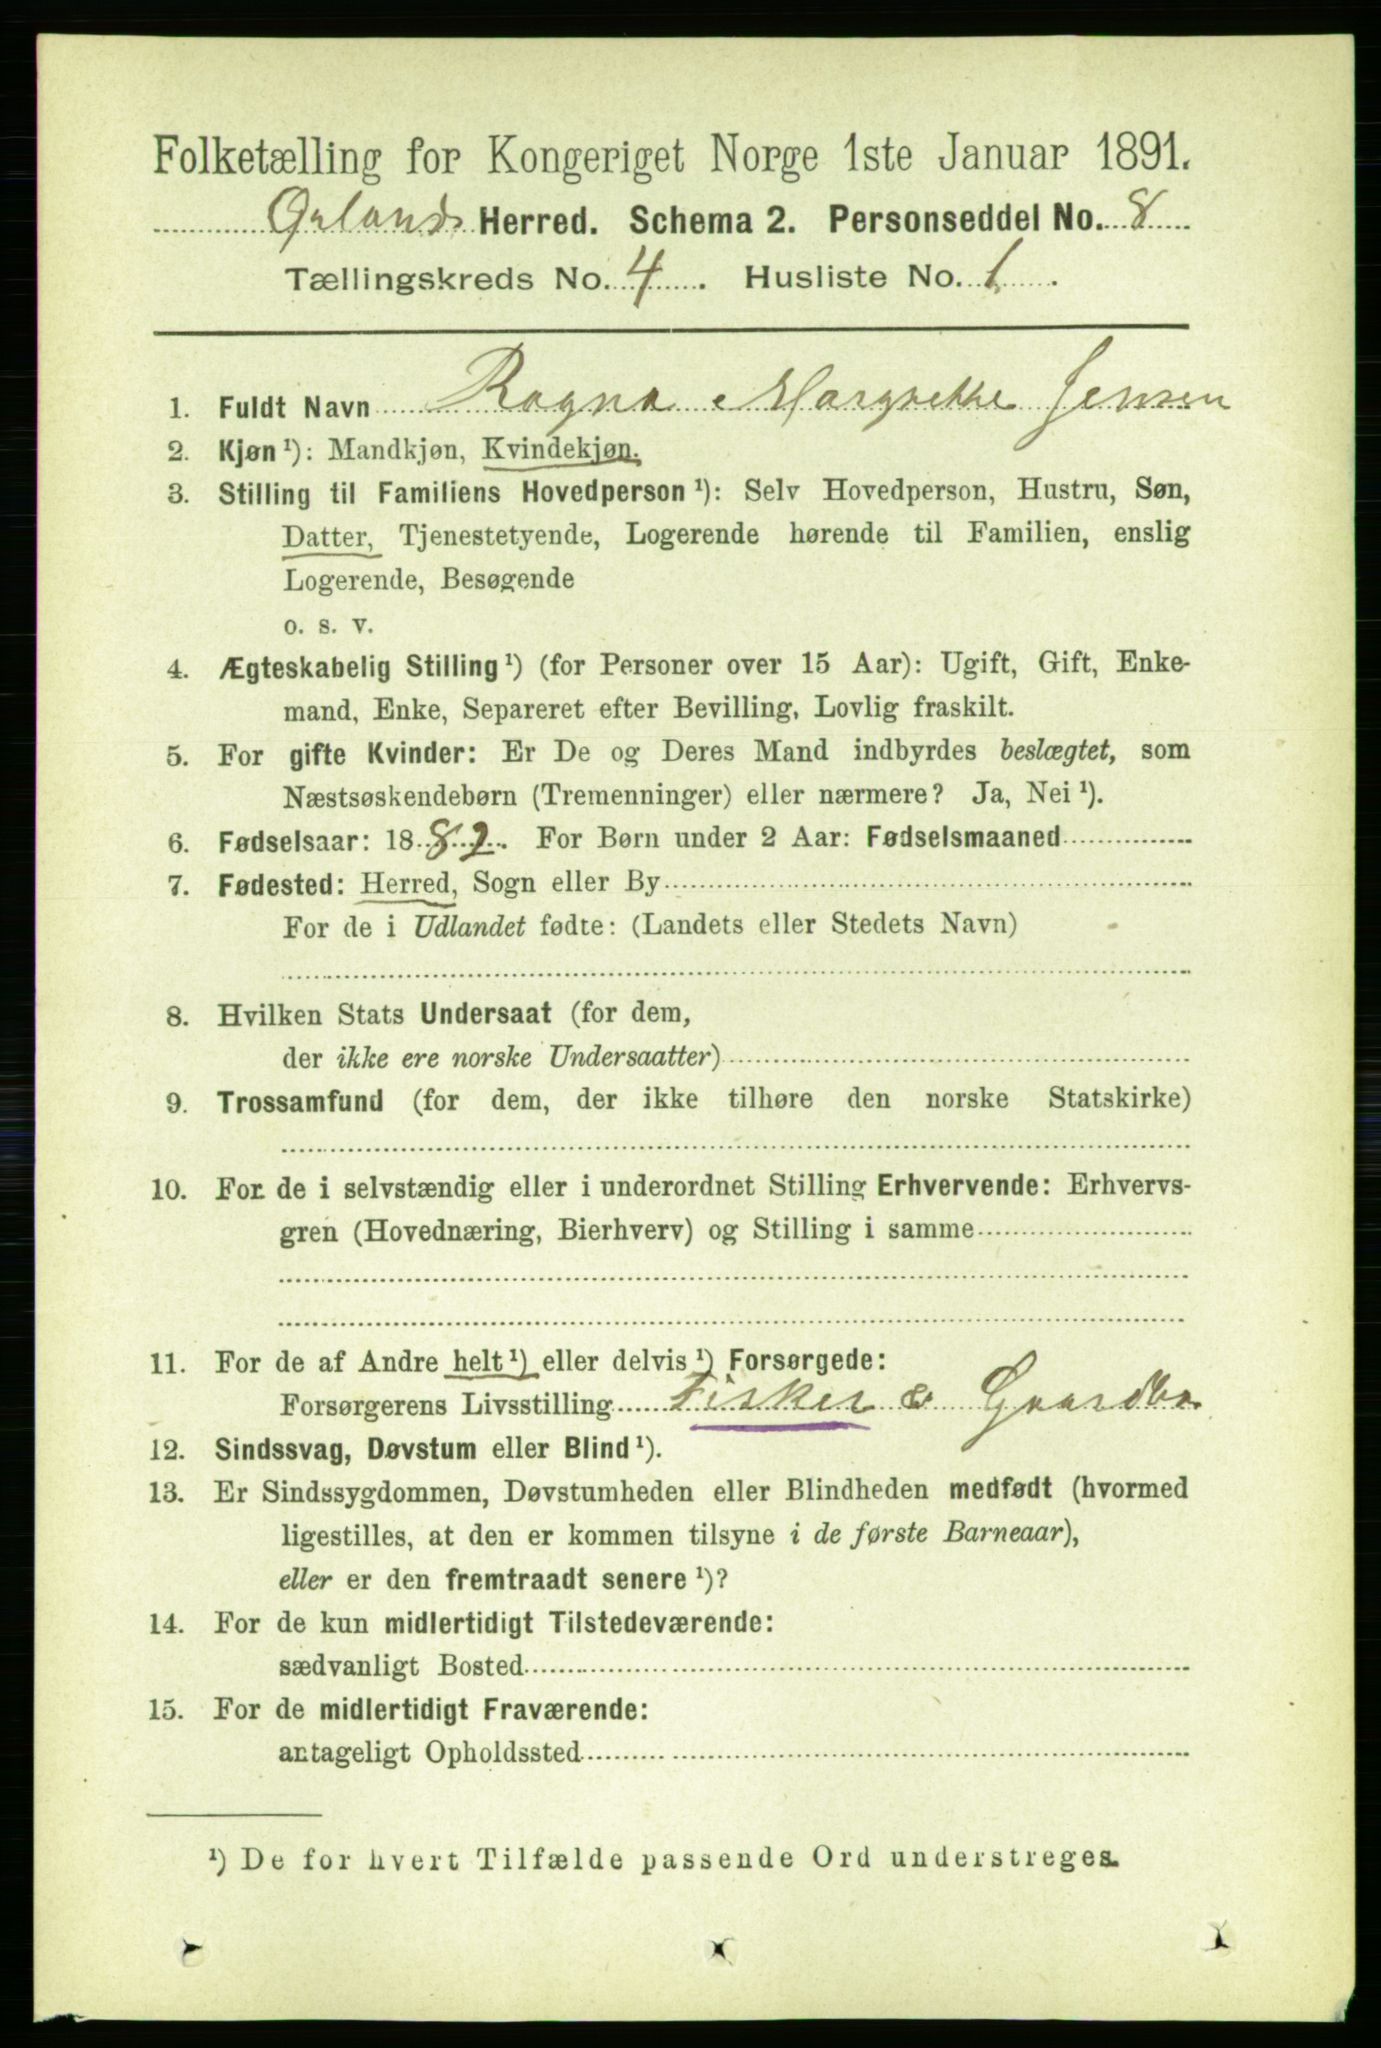 Folketælling for Kongeriget Norge 1ste Januar 1891.
Ørlands Herred. Schema 2. Personseddel No. 8
Tællingskreds No. 4. Husliste No. 1.
1. Fuldt Navn Ragna Margrethe Jensen
2. Kjøn ¹): Mandkjøn, Kvindekjøn.
3. Stilling til Familiens Hovedperson ¹): Selv Hovedperson, Hustru, Søn,
Datter, Tjenestetyende, Logerende hørende til Familien, enslig
Logerende, Besøgende
o. s. v.
4. Ægteskabelig Stilling ¹) (for Personer over 15 Aar): Ugift, Gift, Enke-
mand, Enke, Separeret efter Bevilling, Lovlig fraskilt.
5. For gifte Kvinder: Er De og Deres Mand indbyrdes beslægtet, som
Næstsøskendebørn (Tremenninger) eller nærmere? Ja, Nei ¹).
6. Fødselsaar: 1882. For Børn under 2 Aar: Fødselsmaaned
7. Fødested: Herred, Sogn eller By
For de i Udlandet fødte: (Landets eller Stedets Navn)
8. Hvilken Stats Undersaat (for dem,
der ikke ere norske Undersaatter)
9. Trossamfund (for dem, der ikke tilhøre den norske Statskirke)
10. For de i selvstændig eller i underordnet Stilling Erhvervende: Erhvervs-
gren (Hovednæring, Bierhverv) og Stilling i samme
11. For de af Andre helt ¹) eller delvis ¹) Forsørgede:
Forsørgerens Livsstilling Fisker &
12. Sindssvag, Døvstum eller Blind ¹).
13. Er Sindssygdommen, Døvstumheden eller Blindheden medfødt (hvormed
ligestilles, at den er kommen tilsyne i de første Barneaar),
eller er den fremtraadt senere ¹)?
14. For de kun midlertidigt Tilstedeværende:
sædvanligt Bosted
15. For de midlertidigt Fraværende:
antageligt Opholdssted
¹) De for hvert Tilfælde passende Ord understreges.